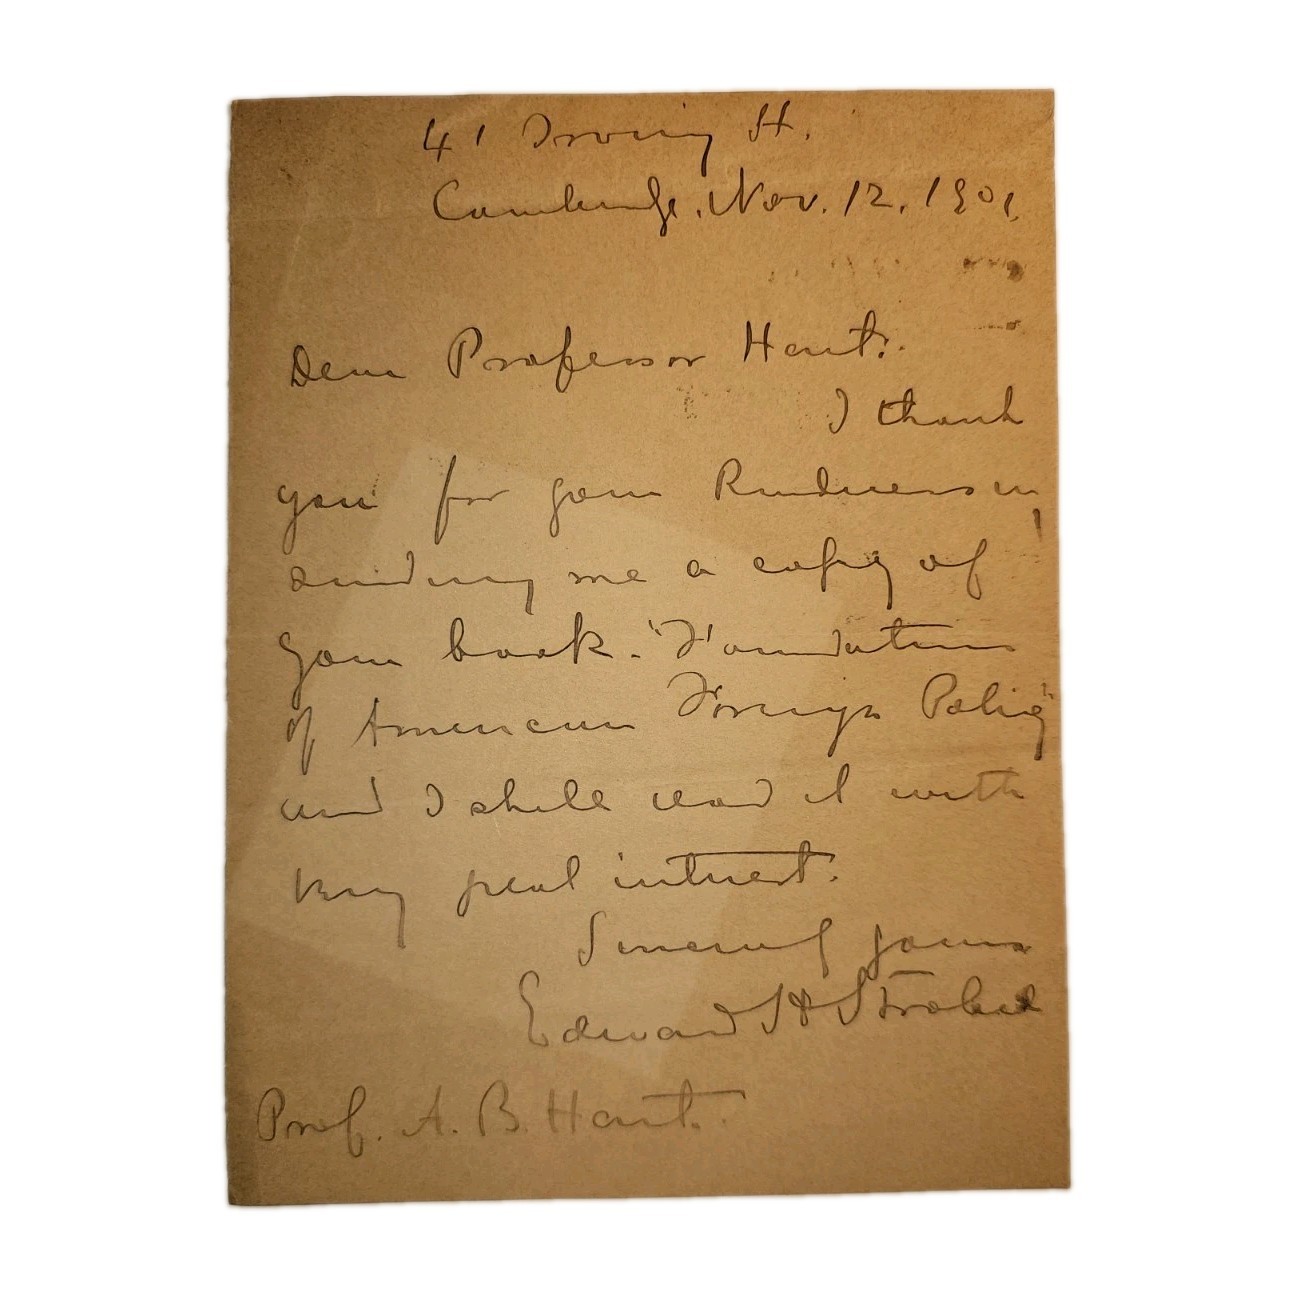 41 Irving St.
Cambridge, Nov. 12, 1901,
Dear Professor Hart:
I thank
you for your kindness in
sending me a copy of
your book. "Foundations
of American Foreign Policy"
and I shall read it with
very great interest.
Sincerely yours
Edward H Strobel
Prof. A. B. Hart.